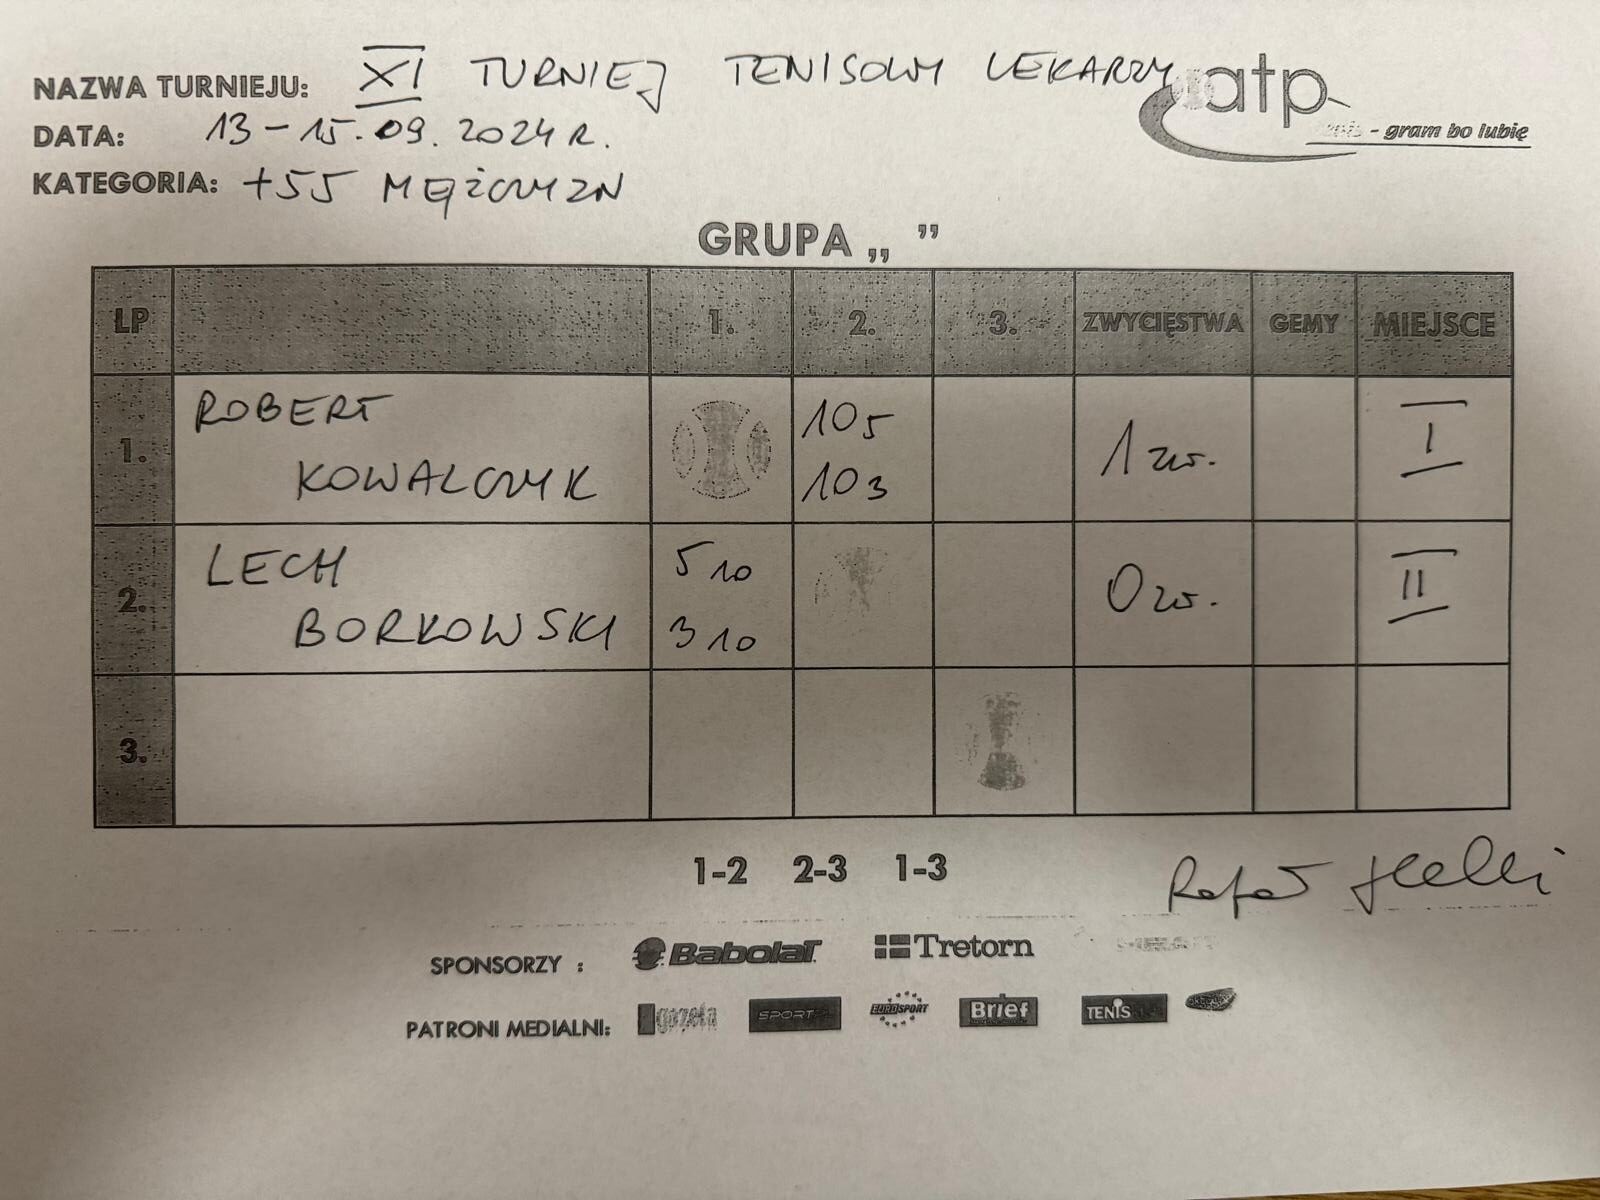 NAZWA TURNIEJU: XI TURNIEJ TENISOWY LEKARZY
atp
- gram bo lubię
DATA: 13-15.09.2024 R.
KATEGORIA: +55 MĘŻCZYZN
GRUPA „ ”
LP 1. 2. 3. ZWYCIĘSTWA GEMY MIEJSCE
1. ROBERT KOWALCZYK 10 5 10 3 1 zw. I
2. LECH BORKOWSKI 5 10 3 10 0 zw. II
3.
1-2 2-3 1-3
Rafał
SPONSORZY : Babolat Tretorn
PATRONI MEDIALNI: gazeta SPORT EUROSPORT Brief TENIS